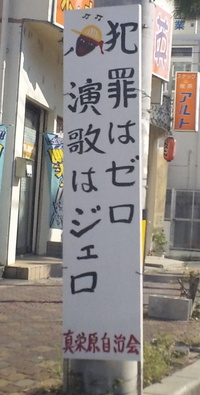 犯罪はゼロ
演歌はジェロ
真栄原自治会
スナック
アルト